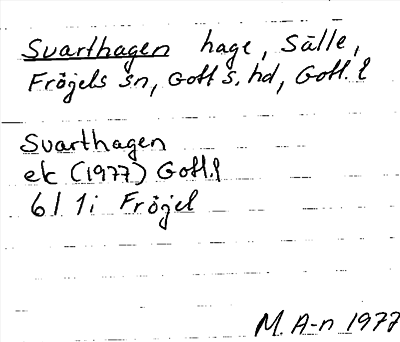 Svarthagen hage, Sälle,
Fröjels sn, Gotl s. hd, Gotl. l
Svarthagen
ek (1977) Gotl.l
6I 1i Fröjel
M. A-n 1977